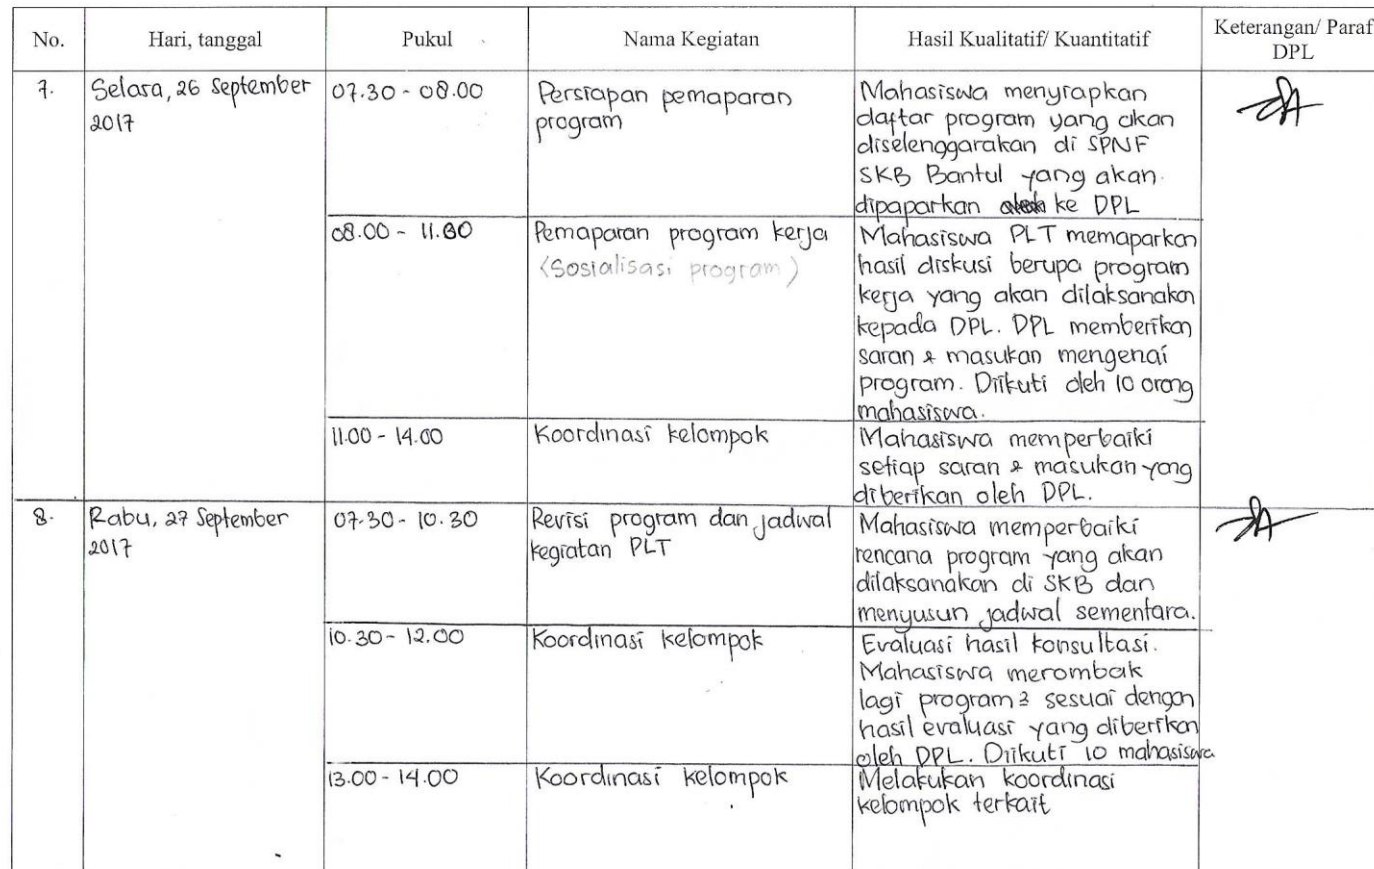 No.
Hari, tanggal
Pukul
Nama Kegiatan
Hasil Kualitatif/ Kuantitatif
Keterangan/ Paraf
DPL
7.
Selasa, 26 September
2017
07.30 - 08.00
Persiapan pemaparan
program
Mahasiswa menyiapkan
daftar program yang akan
diselenggarakan di SPNF
SKB Bantul yang akan
dipaparkan ke DPL
08.00 - 11.00
Pemaparan program kerja
(Sosialisasi program)
Mahasiswa PLT memaparkan
hasil diskusi berupa program
kerja yang akan dilaksanakan
kepada DPL. DPL memberikan
saran & masukan mengenai
program. Diikuti oleh 10 orang
mahasiswa.
11.00 - 14.00
Koordinasi kelompok
Mahasiswa memperbaiki
setiap saran & masukan yang
diberikan oleh DPL.
8.
Rabu, 27 September
2017
07.30 - 10.30
Revisi program dan jadwal
kegiatan PLT
Mahasiswa memperbaiki
rencana program yang akan
dilaksanakan di SKB dan
menyusun jadwal sementara.
10.30 - 12.00
Koordinasi kelompok
Evaluasi hasil konsultasi.
Mahasiswa merombak
lagi program2 sesuai dengan
hasil evaluasi yang diberikan
oleh DPL. Diikuti 10 mahasiswa
13.00 - 14.00
Koordinasi kelompok
Melakukan koordinasi
kelompok terkait